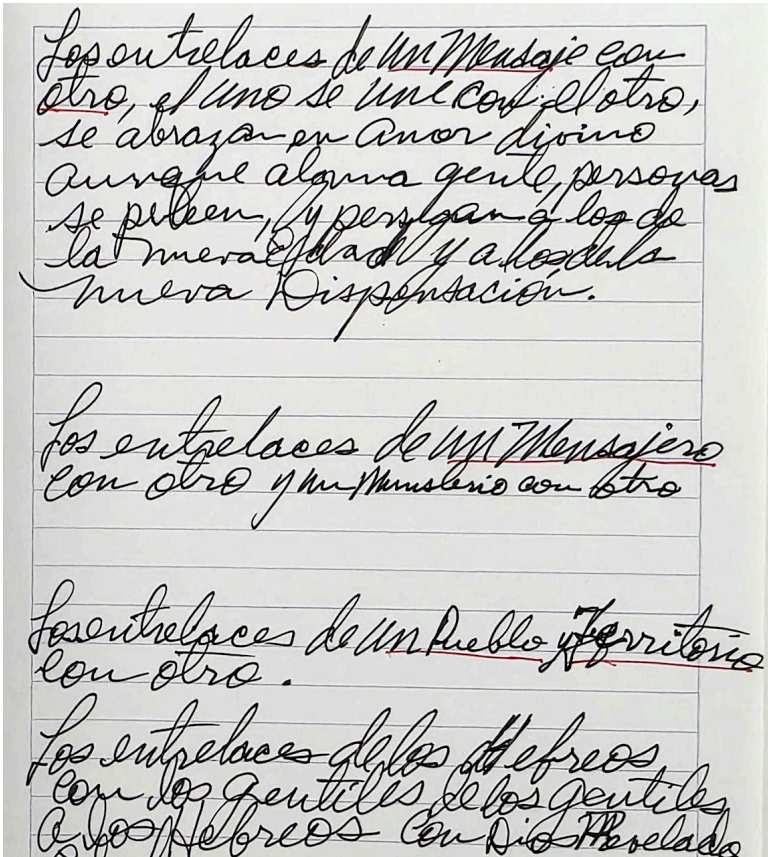 Los entrelaces de un Mensaje con
otro, el uno se une con el otro,
se abrazan en Amor divino
aunque alguna gente, personas
se peleen, y persigan a los de
la nueva Edad y a los de la
nueva Dispensación.
Los entrelaces de un Mensajero
con otro y un Ministerio con otro
Los entrelaces de un Pueblo y Territorio
con otro.
Los entrelaces de los Hebreos
con los gentiles de los gentiles
a los Hebreos con Dios Revelado